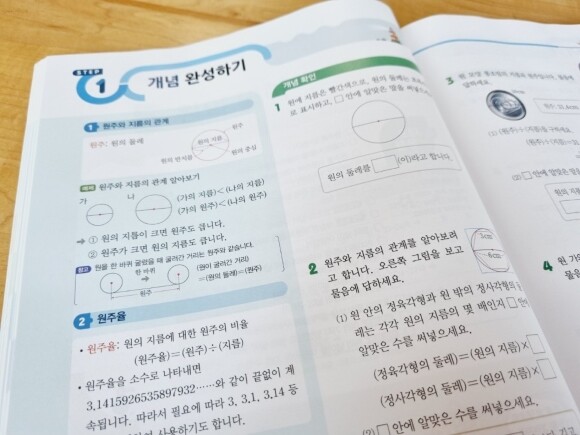 STEP
1
개념 완성하기
1 원주와 지름의 관계
원주: 원의 둘레
원주
원의 지름
원의 반지름
원의 중심
예제 원주와 지름의 관계 알아보기
가
나
(가의 지름)<(나의 지름)
(가의 원주)<(나의 원주)
➔ ① 원의 지름이 크면 원주도 큽니다.
② 원주가 크면 원의 지름도 큽니다.
참고 원을 한 바퀴 굴렸을 때 굴러간 거리는 원주와 같습니다.
한 바퀴
(원이 굴러간 거리)
=(원의 둘레)=(원주)
원주
2 원주율
• 원주율: 원의 지름에 대한 원주의 비율
(원주율)=(원주)÷(지름)
• 원주율을 소수로 나타내면
3.1415926535897932……와 같이 끝없이 계
속됩니다. 따라서 필요에 따라 3, 3.1, 3.14 등
사용하기도 합니다.
개념 확인
1 원에 지름은 빨간색으로, 원의 둘레는
로 표시하고, □ 안에 알맞은 말을 써넣으
원의 둘레를 □(이)라고 합니다.
2 원주와 지름의 관계를 알아보려
고 합니다. 오른쪽 그림을 보고
물음에 답하세요.
(1) 원 안의 정육각형과 원 밖의 정사각형의
레는 각각 원의 지름의 몇 배인지 □ 안
알맞은 수를 써넣으세요.
(정육각형의 둘레)=(원의 지름)×□
(정사각형의 둘레)=(원의 지름)×□
(2) □ 안에 알맞은 수를 써넣으세요.
3
답하세요.
(1)
(2) □ 안에 알맞은
4